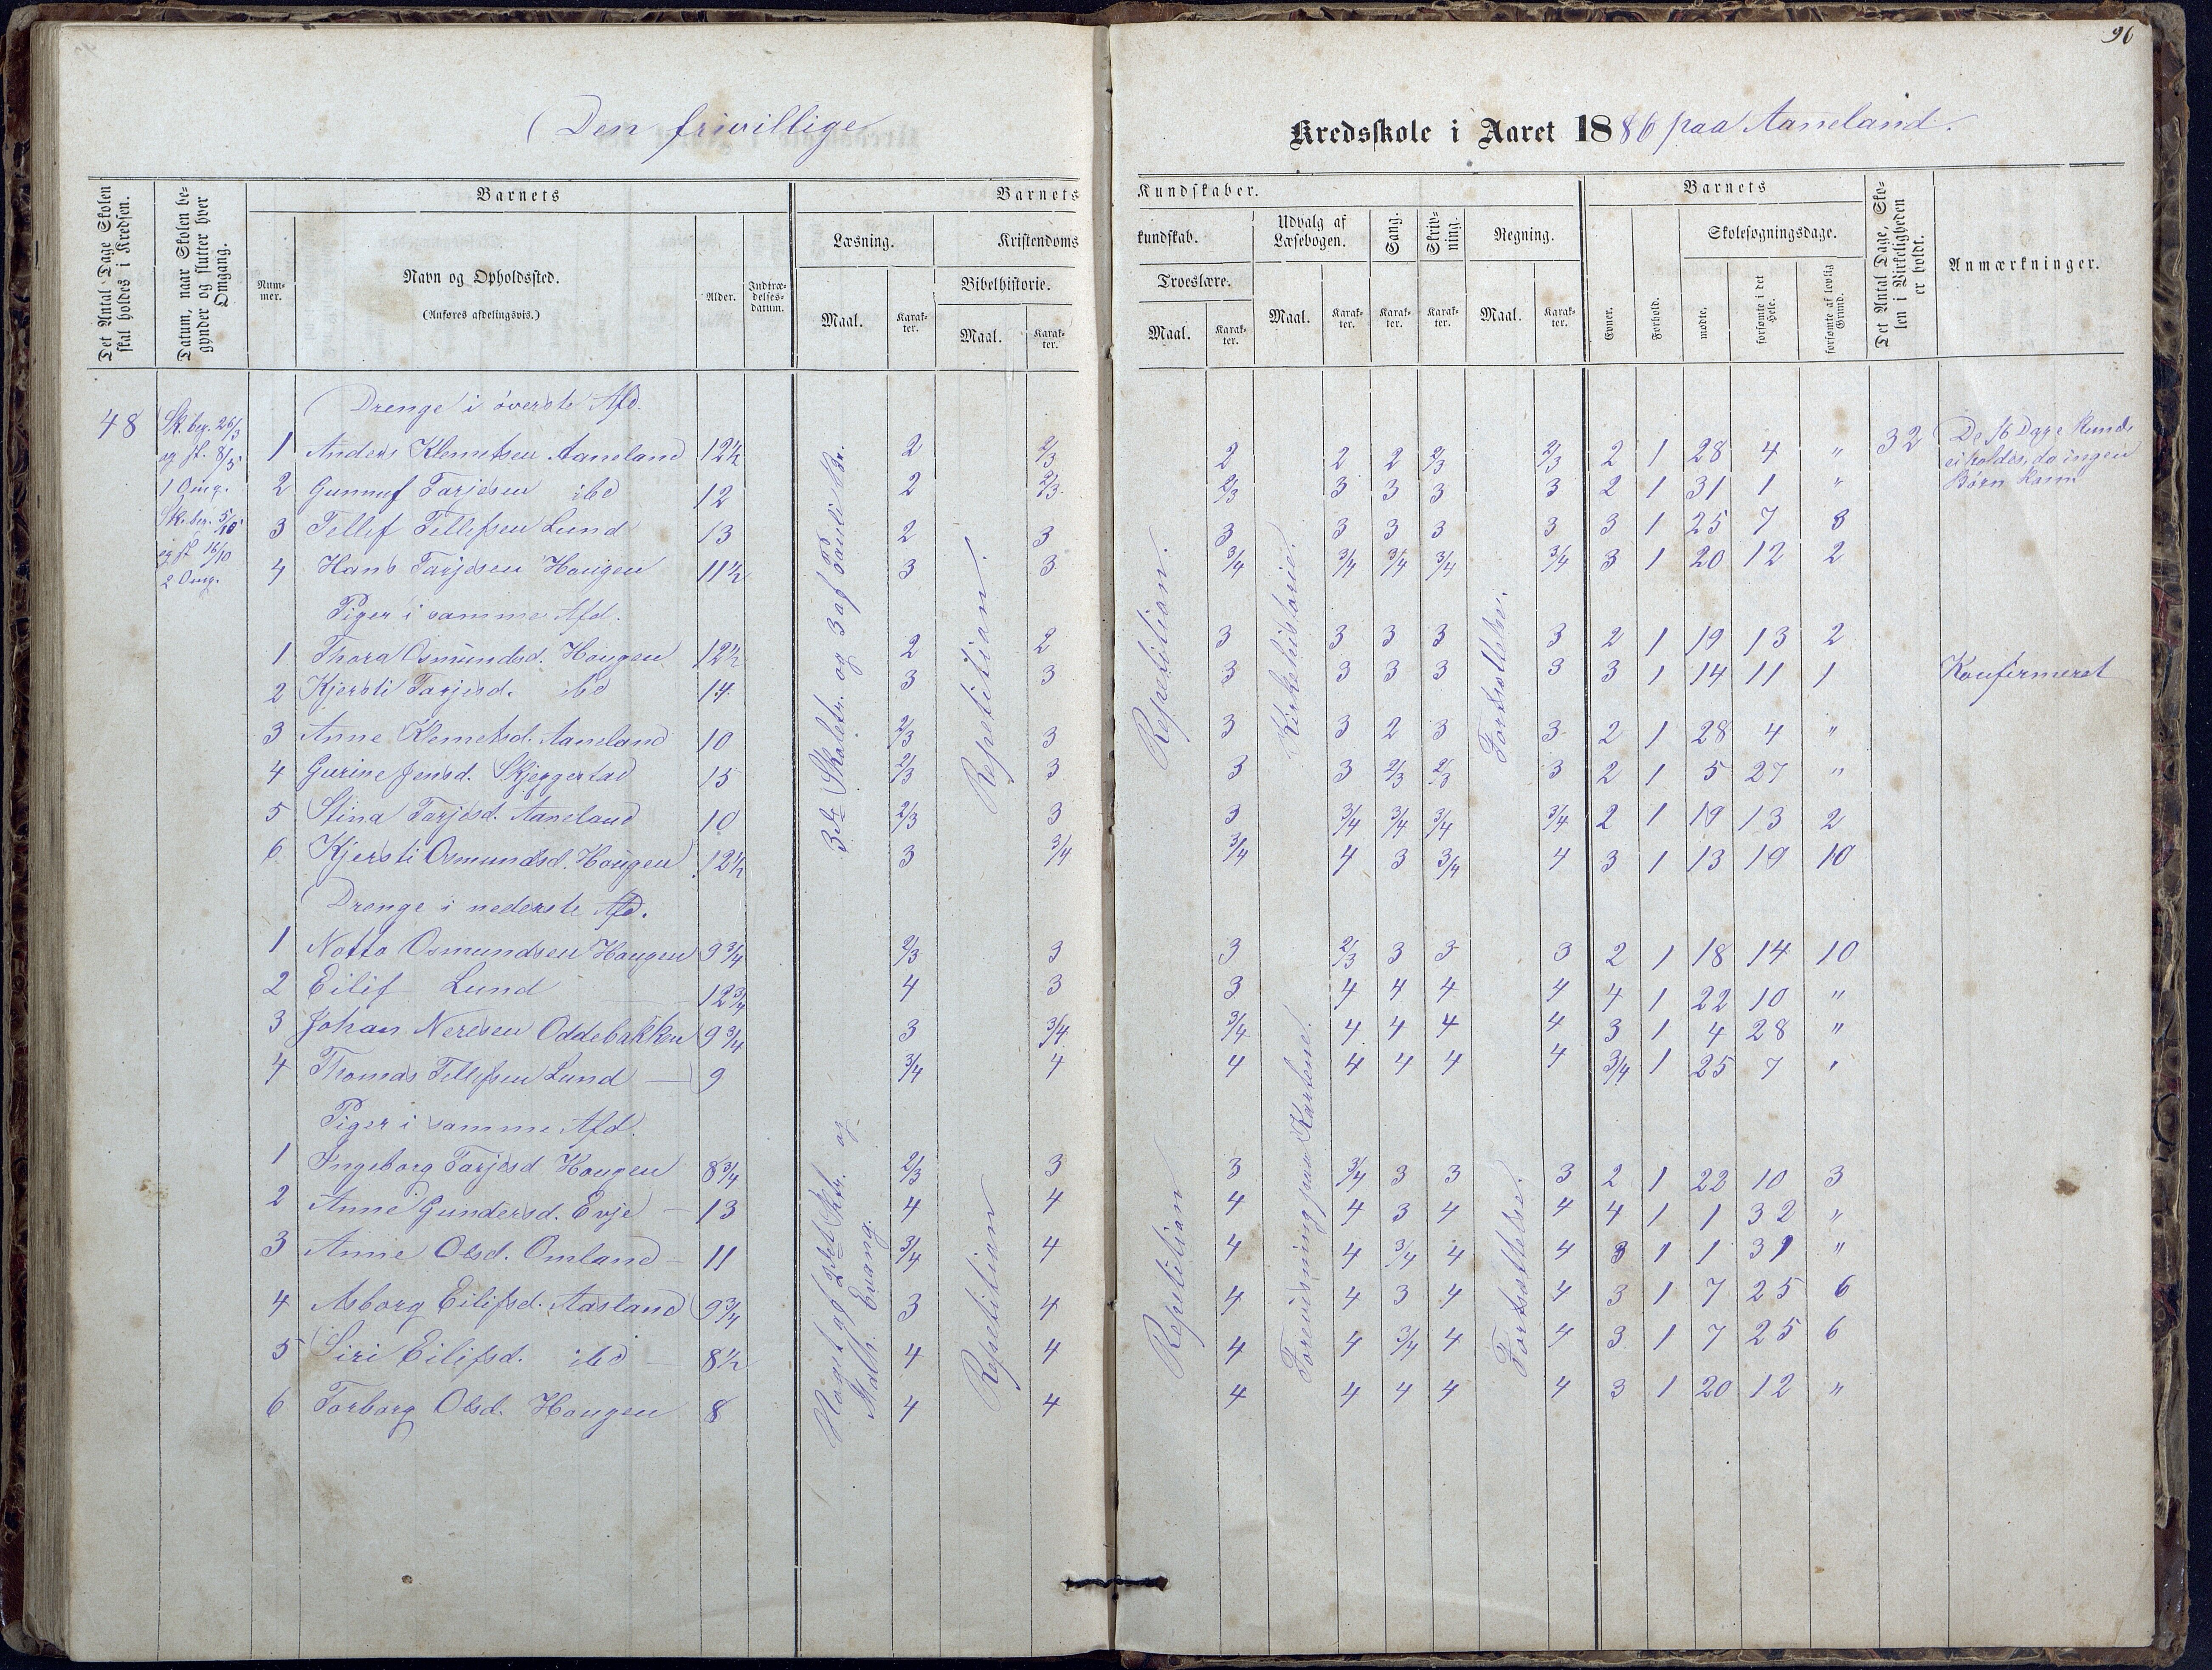 96
Den frivillige Kredsskole i Aaret 1886 paa Aaneland.
Det Antal Dage Skolen skal holdes i Kredsen.
Datum, naar Skolen begynder og slutter hver Omgang.
Barnets
Nummer.
Navn og Opholdssted.
(Anføres afdelingsvis.)
Alder.
Indtrædelsesdatum.
Barnets Kundskaber.
Læsning.
Maal.
Karakter.
Kristendomskundskab.
Bibelhistorie.
Maal.
Karakter.
Troeslære.
Maal.
Karakter.
Udvalg af Læsebogen.
Maal.
Karakter.
Sang.
Karakter.
Skrivning.
Karakter.
Regning.
Maal.
Karakter.
Barnets
Evner.
Forhold.
Skolesøgningsdage.
mødte.
forsømte i det Hele.
forsømte af lovlig Grund.
Det Antal Dage, Skolen i Virkeligheden er holdt.
Anmærkninger.
48
Sk. beg. 26/3
og sl. 8/5
1 Omg.
Sk. beg. 5/10
og sl. 16/10
2 Omg.
32
De 16 Dage kunde
ei holdes, da ingen
Børn kom.
3die Skoletr. og 3 af Pauli Br.
Repetition.
Repetition.
Kirkehistorie.
Fortsættelse.
Drenge i øverste Afd.
1 Anders Klemetsen Aaneland 12½ 2 2/3 2 2 2 2/3 2/3 2 1 28 4 "
2 Gunnuf Tarjesen ibd 12 2 2/3 2/3 3 3 3 3 2 1 31 1 "
3 Tellef Tellefsen Lund 13 2 3 3 3 3 3 3 3 1 25 7 8
4 Hans Tarjesen Hougen 11½ 3 3 3/4 3/4 3/4 3/4 3/4 3 1 20 12 2
Piger i samme Afd.
1 Thora Osmundsd. Hougen 12½ 2 2 3 3 3 3 3 2 1 19 13 2
2 Kjersti Tarjesd. ibd 14 3 3 3 3 3 3 3 3 1 14 11 1 Konfirmeret
3 Anne Klemetsd. Aaneland 10 2/3 3 3 3 2 3 3 2 1 28 4 "
4 Gurine Jensd. Skjeggestad 15 2/3 3 3 3 2/3 2/3 3 2 1 5 27 "
5 Stina Tarjesd. Aaneland 10 2/3 3 3 3/4 3/4 3/4 3/4 2 1 19 13 2
6 Kjersti Osmundsd. Hougen 12½ 3 3/4 3/4 4 3 3/4 4 3 1 13 19 10
Drenge i nederste Afd.
1 Notto Osmundsen Hougen 9¾ 2/3 3 3 2/3 3 3 3 2 1 18 14 10
2 Eilif Lund 12¾ 4 3 3 4 4 4 4 4 1 22 10 "
3 Johan Neresen Oddebakken 9¾ 3 3/4 3/4 4 4 4 4 3 1 4 28 "
4 Thomas Tellefsen Lund — 9 3/4 4 4 4 4 4 4 3/4 1 25 7 "
Piger i samme Afd.
Repetition
Repetition
Forevisning paa Kartene.
Fortsættelse.
Noget af 2det Sktr. og
Math. Evang.
1 Ingeborg Tarjesd Hougen 8¾ 2/3 3 3 3/4 3 3 3 2 1 22 10 3
2 Anne Gundersd. Evje — 13 4 4 4 4 3 4 4 4 1 1 32 "
3 Anne Olsd. Omland — 11 3/4 4 4 4 3/4 4 4 3 1 1 31 "
4 Asborg Eilifsd. Aasland 9¾ 3 4 4 4 3 4 4 3 1 7 25 6
5 Siri Eilifsd. ibd — 8½ 4 4 4 4 3/4 4 4 3 1 7 25 6
6 Torborg Olsd. Hougen 8 4 4 4 4 4 4 4 3 1 20 12 "